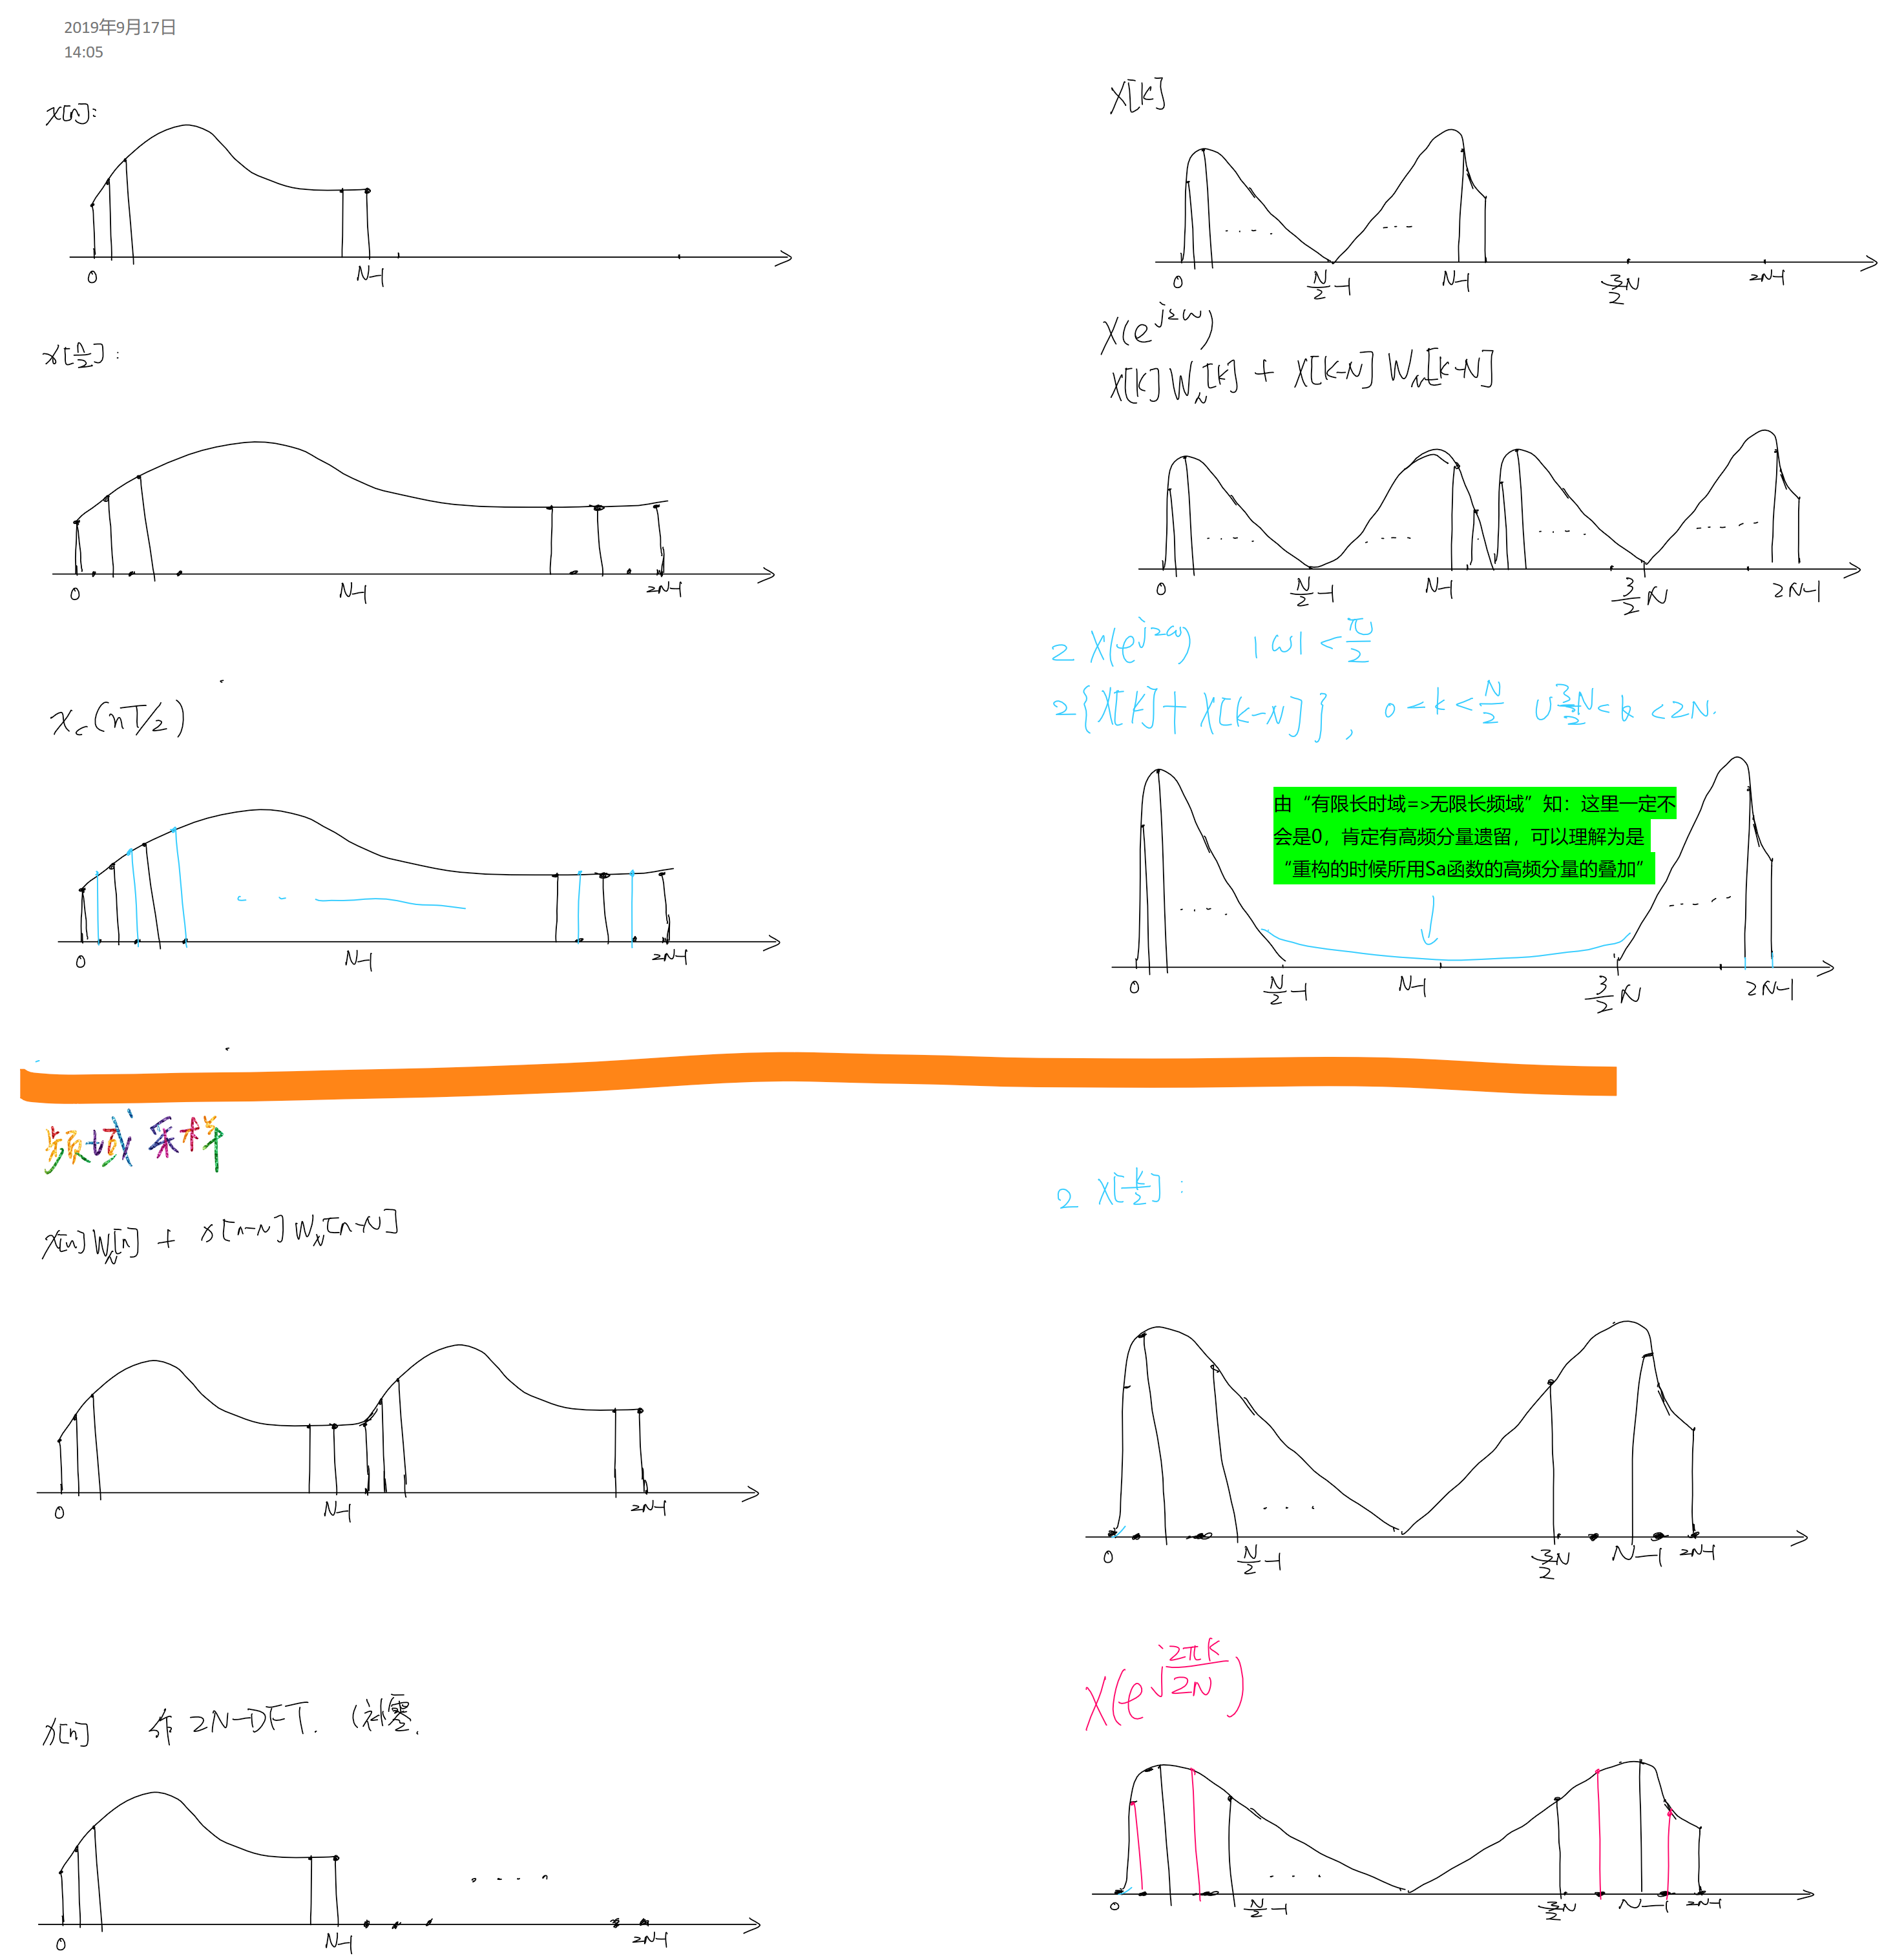 2019年9月17日
14:05
x[n]:
0 N-1
x[n/2]:
0 N-1 2N-1
x_c(nT/2)
0 N-1 2N-1
X[k]
0 N/2-1 N-1 3/2N 2N-1
X(e^{j2ω})
X[k]W_N[k] + X[k-N]W_N[k-N]
0 N/2-1 N-1 3/2N 2N-1
2X(e^{j2ω}) |ω|<π/2
2{X[k]+X[k-N]}, 0<k<N/2 ∪ 3/2N<k<2N.
由“有限长时域=>无限长频域”知：这里一定不
会是0，肯定有高频分量遗留，可以理解为是
“重构的时候所用Sa函数的高频分量的叠加”
0 N/2-1 N-1 3/2N 2N-1
频域采样
x[n]W_N[n] + x[n-N]W_N[n-N]
0 N-1 2N-1
2X[k/2]:
0 N/2-1 3/2N N-1 2N-1
x[n] 作2N-DFT. (补零.
0 N-1 2N-1
X(e^{j2πk/2N})
0 N/2-1 3/2N N-1 2N-1